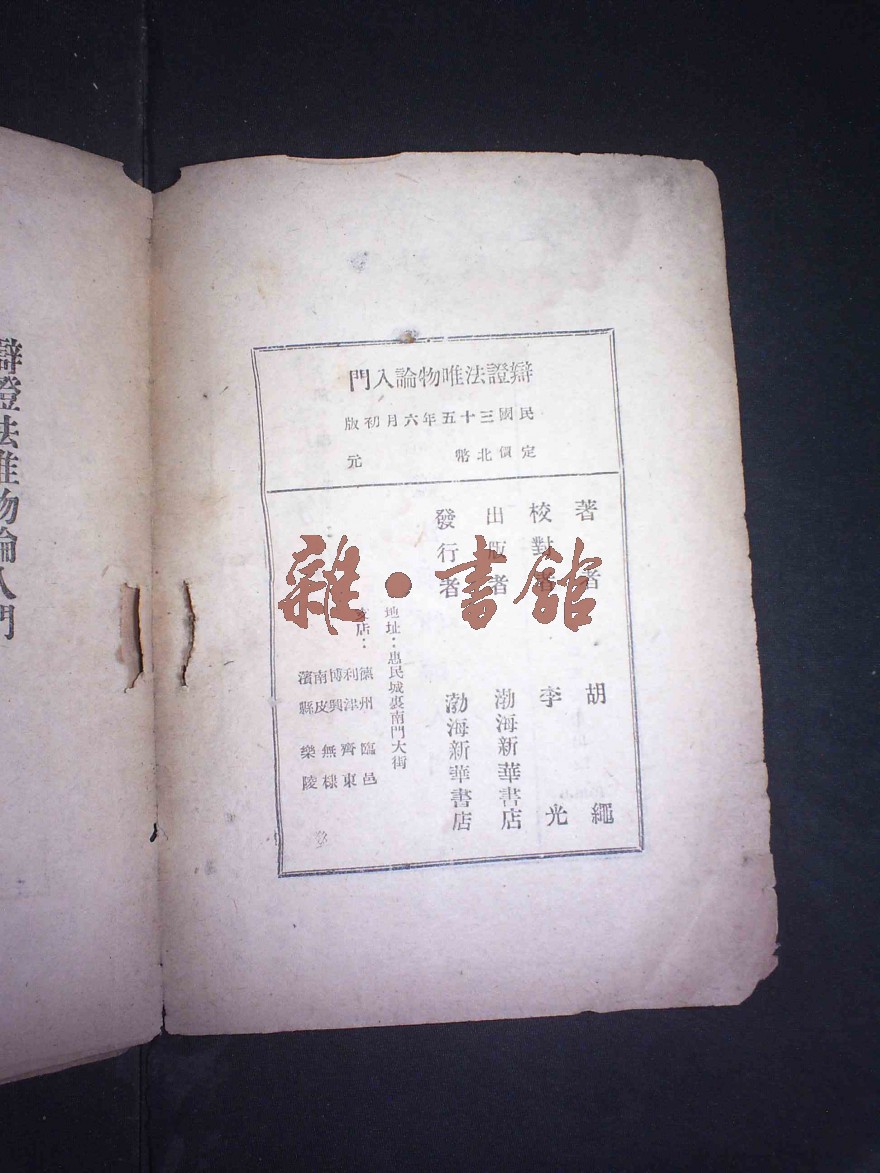 辯證法唯物論入門
辯證法唯物論入門
民國三十五年六月初版
定價北幣 元
著者 胡繩
校對者 李光
出版者 渤海新華書店
發行者 渤海新華書店
地址：惠民城裏南門大街
支店：
德州 臨邑
利津 齊東
博興 無棣
南皮 樂陵
濱縣
雜·書館